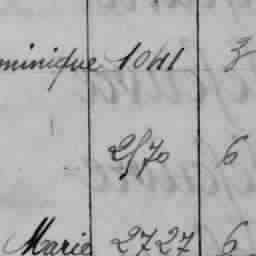 minique 1041 3
2570 6
Marie 2727 6